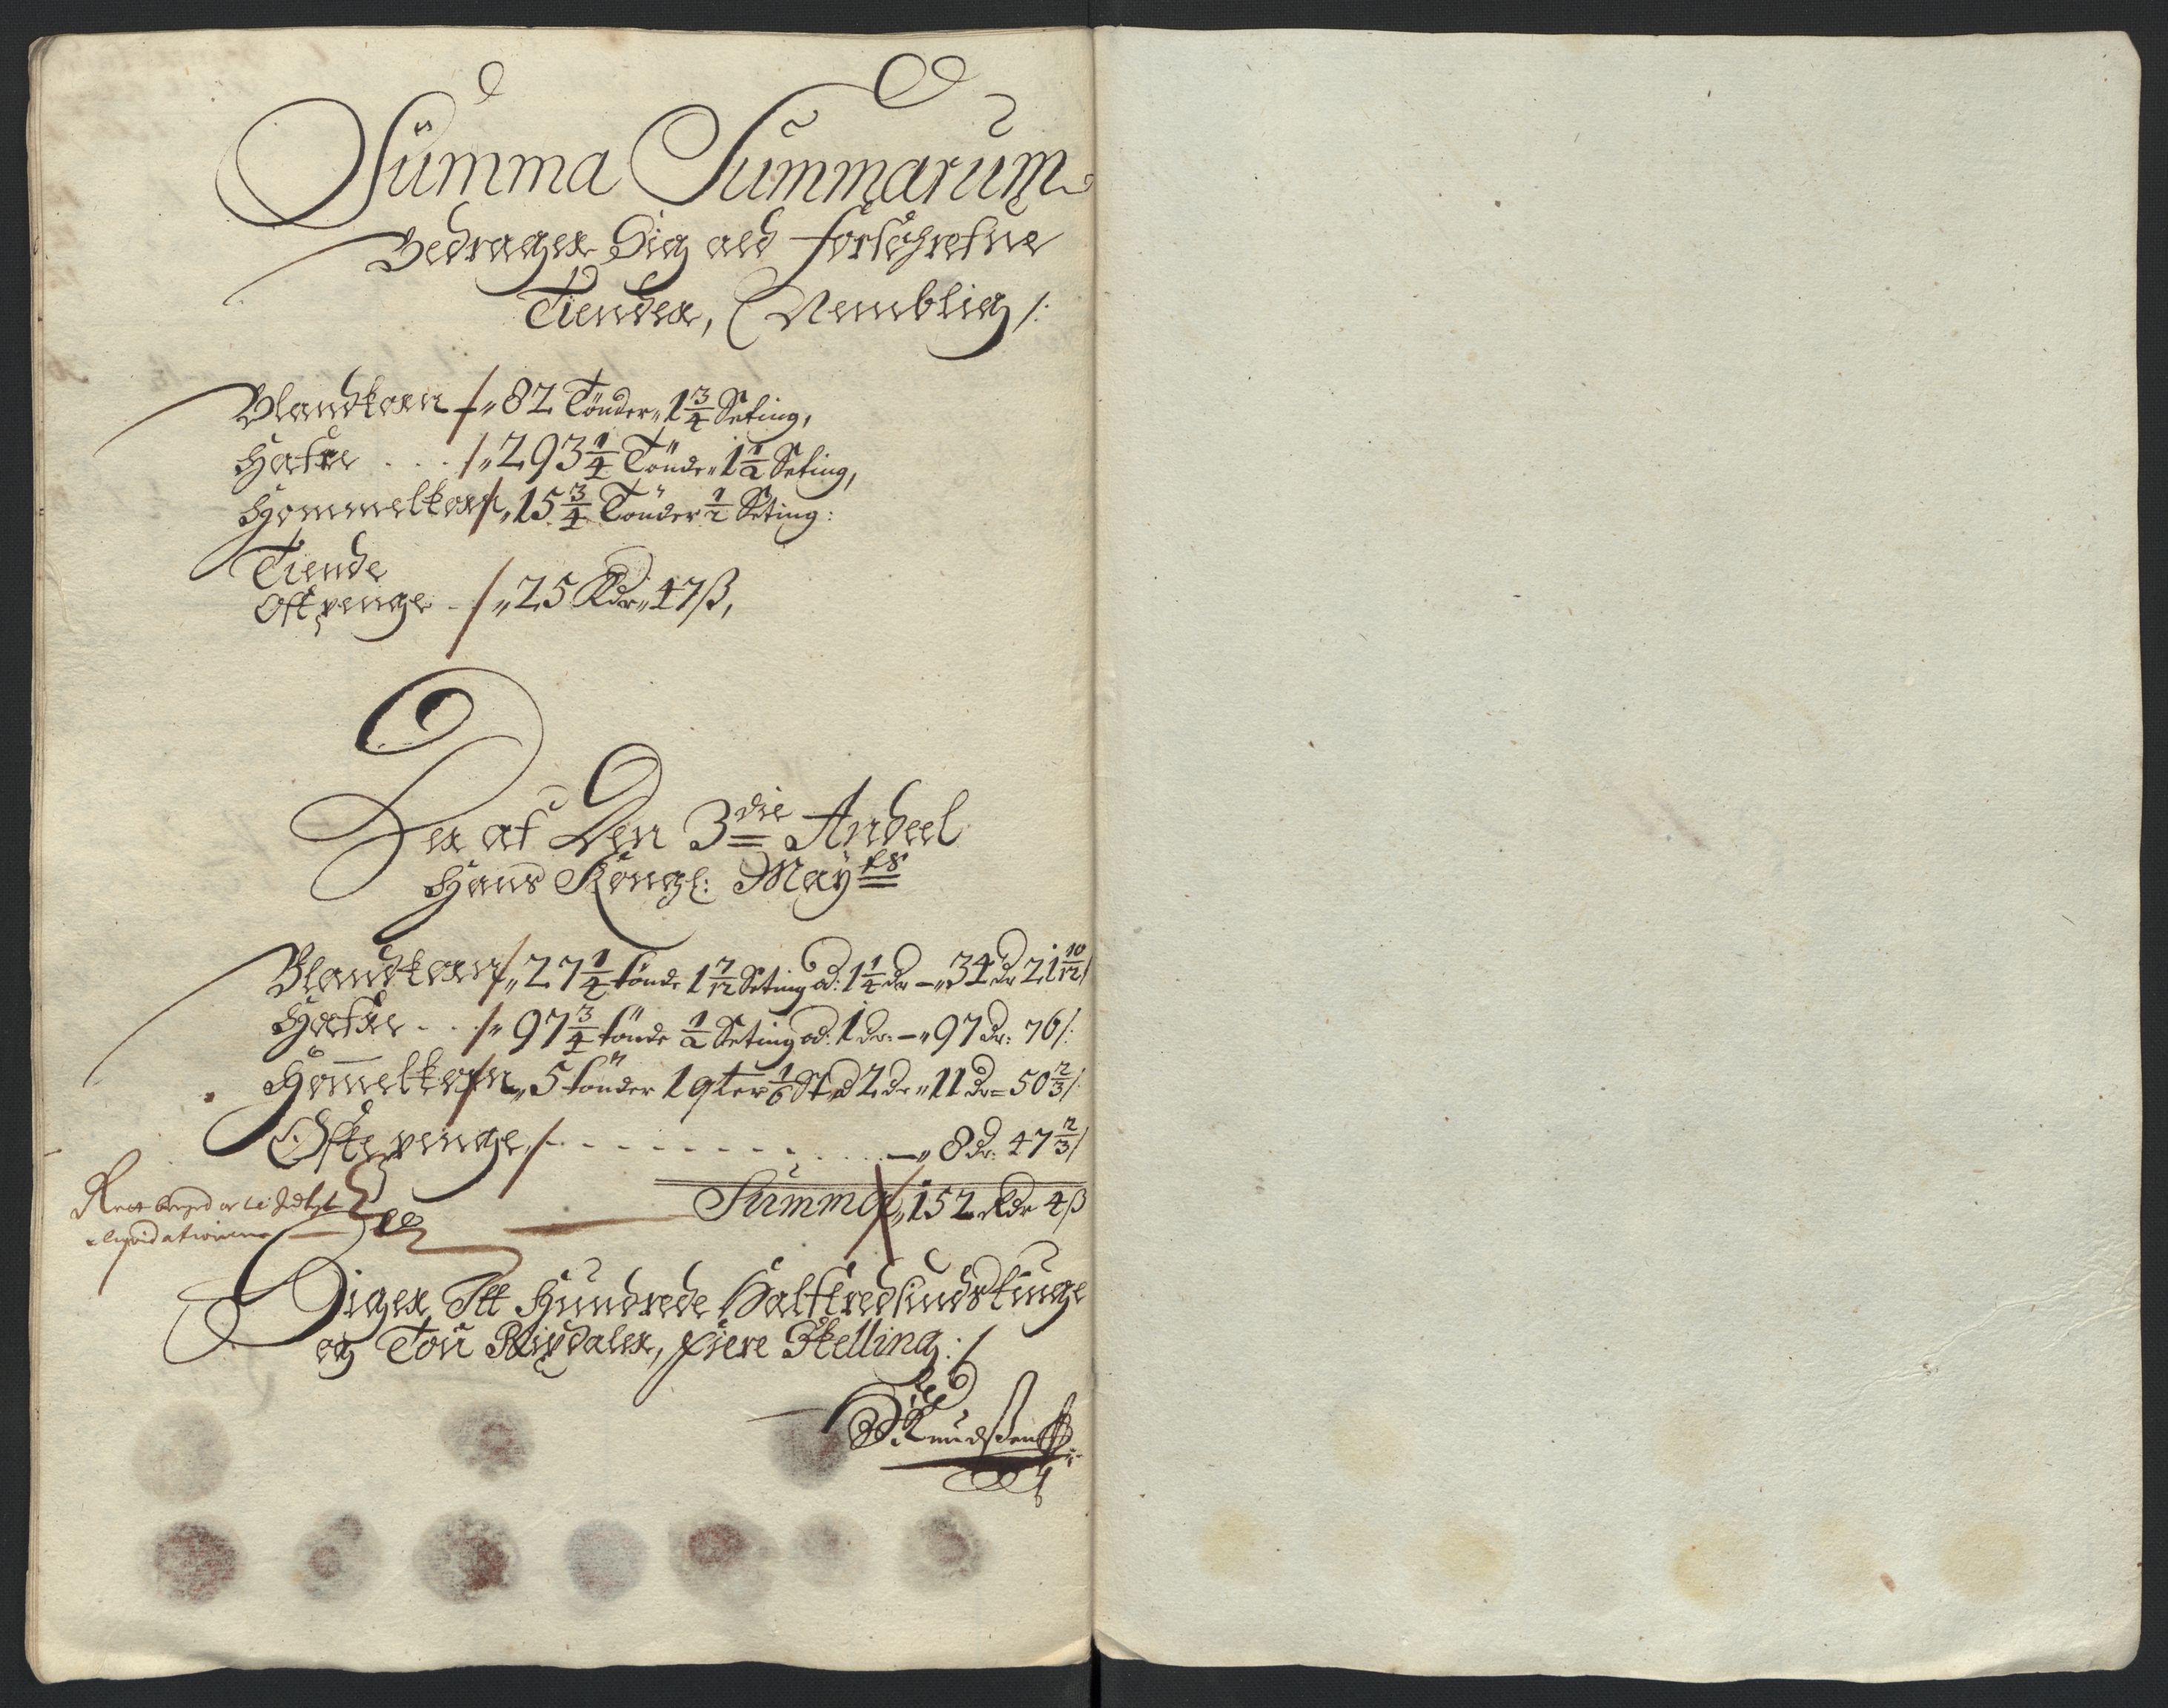 Summa Summarum
Bedrager Sig ald forschrefne
Tiender, Nemblig /:
Blandkorn /„ 82 Tönder„ 1 3/4 Seting,
Hafre . . . /„ 293 1/4 Tönde„ 1 1/2 Seting,
Hommelkorn /„ 15 3/4 Tönder 1/2 Seting:
Tiende
Ostpenge . /„ 25 Rdr„ 47 ß,
Der af Den 3die Andeel
Hans Kongl: Mayts
Blandkorn /„ 27 1/4 tönde 1 7/12 Seting ad: 1 1/4 dr –„ 34 dr 21 10/12 /
Hafre . . /„ 97 3/4 tönde 1/2 Seting ad: 1 dr: –„ 97 dr: 76 /:
Hom̅elkorn /„ 5 tönder 1 qter 1/6 St ad 2 dr „ 11 dr= 50 2/3 /:
Oste penge / - - - - - - - –„ 8 dr: 47 2/3 /
Summa /„ 152 Rdr 4 ß
liqvidationerne
Siger Itt Hundrede Halftredsindstiuge
og Tou Rixdaler, fiere Skelling: /
Knudßen